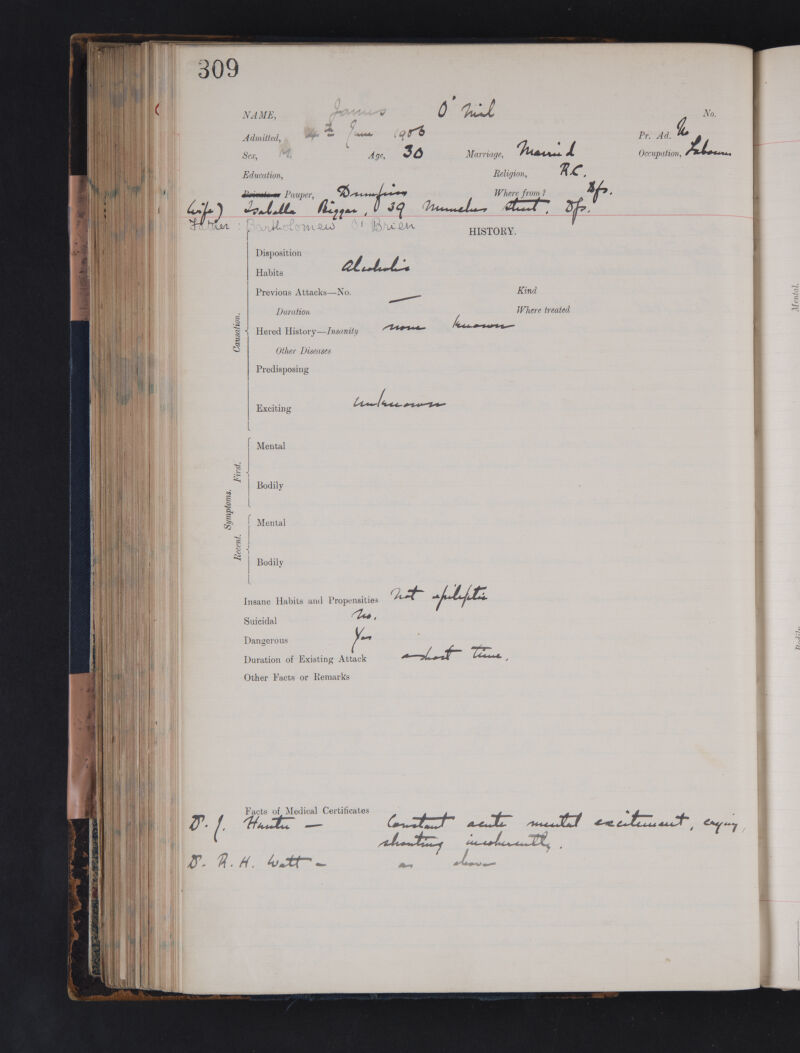 309
NAME, James O'Neil No.
Admitted, 4th June 1903 Pr. Ad. No
Sex, M. Age, 30 Marriage, Married Occupation, Labourer
Education, Religion, R.C.
Private or Pauper, Dumfries Where from? Dfs.
Wife) Isabella Biggar, 39 Munches Street, Dfs.
Father: Bartholomew O'Brien
HISTORY.
Causation.
Disposition
Habits Alcoholic
Previous Attacks—No. — Kind
Duration Where treated
Hered History—Insanity none known
Other Diseases
Predisposing
Exciting unknown
Symptoms.
First.
Mental
Bodily
Recent.
Mental
Bodily
Insane Habits and Propensities Not epileptic
Suicidal No.
Dangerous Yes
Duration of Existing Attack a short time.
Other Facts or Remarks
Facts of Medical Certificates
Dr. J. Hunter — Constant acute mental excitement, crying,
shouting incoherently.
Dr. R. H. Watt - as above
Mental.
Bodily.